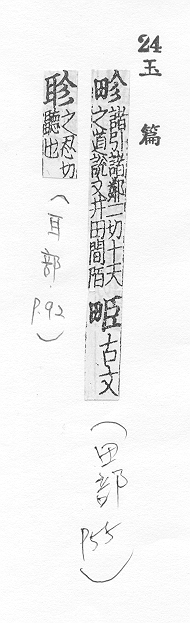 24 玉篇
畛
諸引諸鄰二切十夫
之道說文井田間陌
古文
(田部 P.55)
聄
之忍切
聽也
(耳部 P.92)